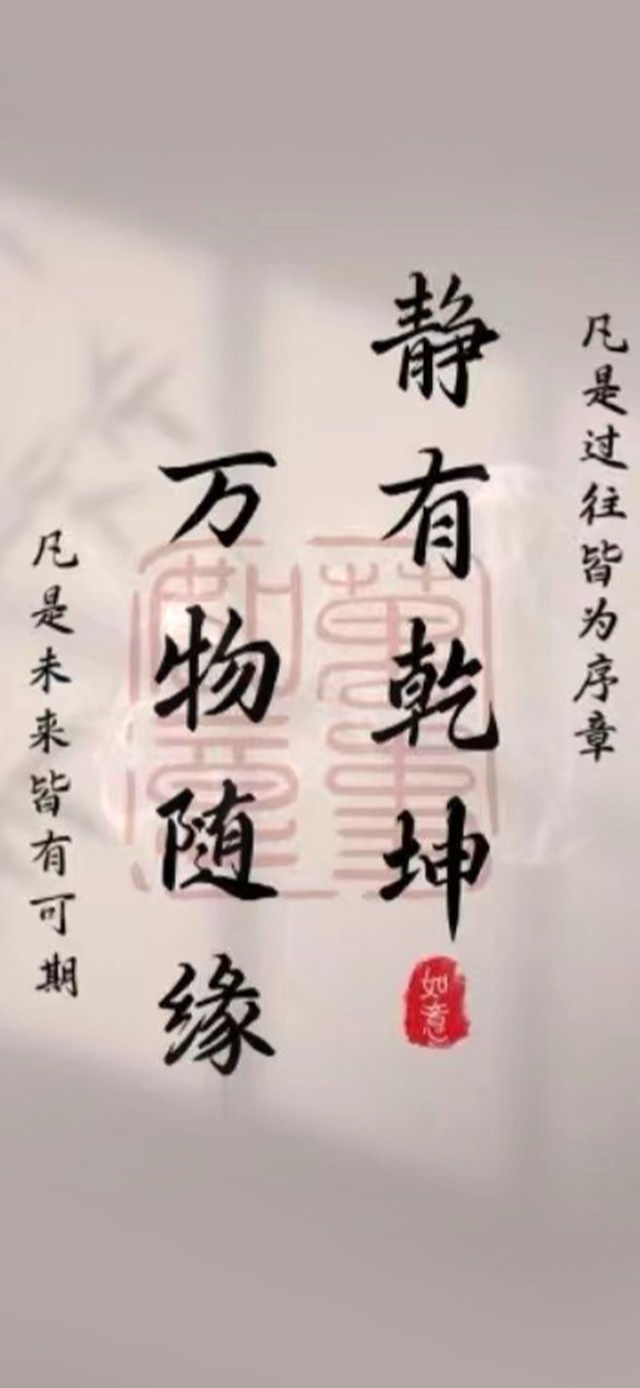 凡是过往皆为序章
静有乾坤
如意
万物随缘
凡是未来皆有可期